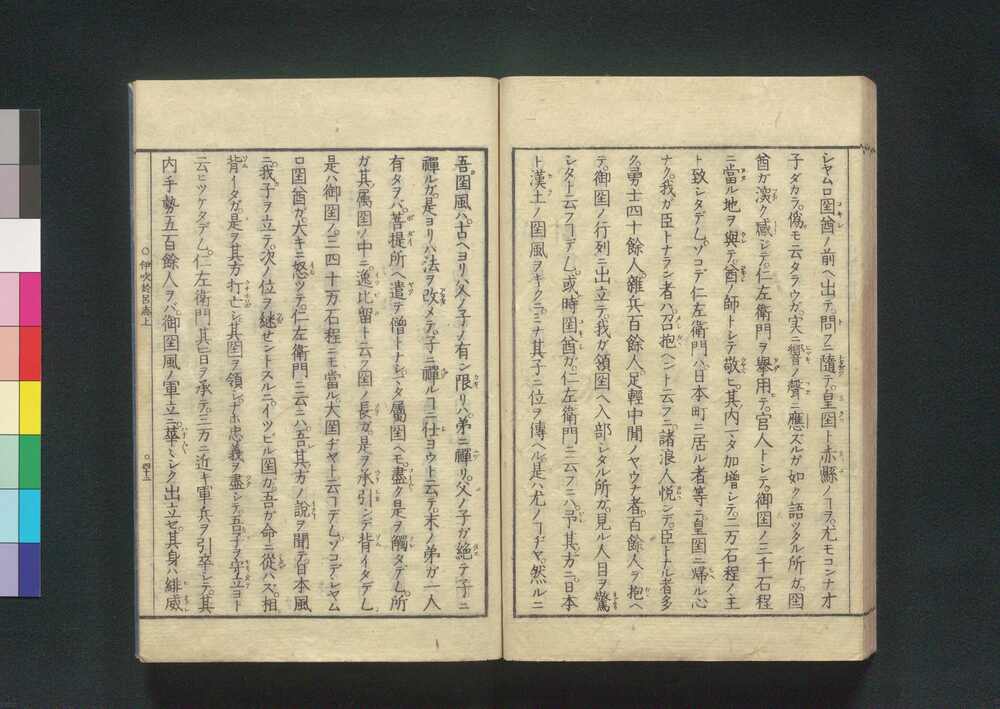 シヤムロ国酋ノ前ヘ出テ。問フニ隨テ。皇国ト赤縣ノヿヲ。尤モコンナオ
子ダカラ。偽モ云タラウガ。実ニ響ノ聲ニ應ズルガ如ク語ツタル所ガ。国
酋ガ深ク感シテ。仁左衛門ヲ舉用テ。官人トシテ。御国ノ三千石程
ニ當ル地ヲ與テ。酋ノ師トシテ敬ヒ。其内ニタ加增シテ。二万石程ノ主
ト致シタデム。ソコデ仁左衛門ハ日本町ニ居ル者等ニ皇国ニ帰ル心
ナク。我ガ臣トナラン者ハ。召抱ヘント云フニ。諸浪人悦ンデ。臣トナル者多
ク。勇士四十餘人。雜兵百餘人。足輕中間ノヤウナ者。百餘人ヲ抱ヘ
テ。御国ノ行列ニ出立テ。我ガ領国ヘ入部シタル所ガ。見ル人目ヲ驚
シタト云フヿデム。或時国酋ガ。仁左衛門ニ云フニハ。予其方ニ。日本
ト漢土ノ国風ヲキクニ。ミナ其子ニ位ヲ傳ヘル。是ハ尤ノヿヂヤ。然ルニ
吾国風ハ。古ヘヨリ。父ノ子ノ有ン限リハ。弟ニ禪リ。父ノ子ガ絶テ子ニ
禪ルガ。是ヨリハ法ヲ改メテ。子ニ禪ルヿニ仕ヨウト云テ。末ノ弟ガ一人
有タヲバ。菩提所ヘ遣テ僧トナシ。マタ屬国ヘモ。盡ク是ヲ觸タデム。所
ガ其属国ノ中ニ。逸比留ト云フ国ノ長ガ。是ヲ承引ンデ背イタデム
是ハ御国ノ。二四十万石程ニモ當ル。大国ヂヤト云フヿデム。ソコデ。シヤム
ロ国酋ガ大キニ怒ツテ。仁左衛門ニ云ニハ。吾其方ノ説ヲ聞テ。日本風
ニ。我子ヲ立テ。次ノ位ヲ継せントスルニ。イツビル国ガ吾ガ命ニ從ハス。相
背イタガ。是ヲ其方打亡シ。其国ヲ領シ。ナホ忠義ヲ盡シテ。吾子ヲ守立ヨト
云ヒツケタデム。仁左衛門其旨ヲ承テ。三万ニ近キ軍兵ヲ引率シテ。其
内手勢五百餘人ヲバ。御国風ノ軍立ニ。華〻シク出立セ。其身ハ緋威
○伊吹於呂志上